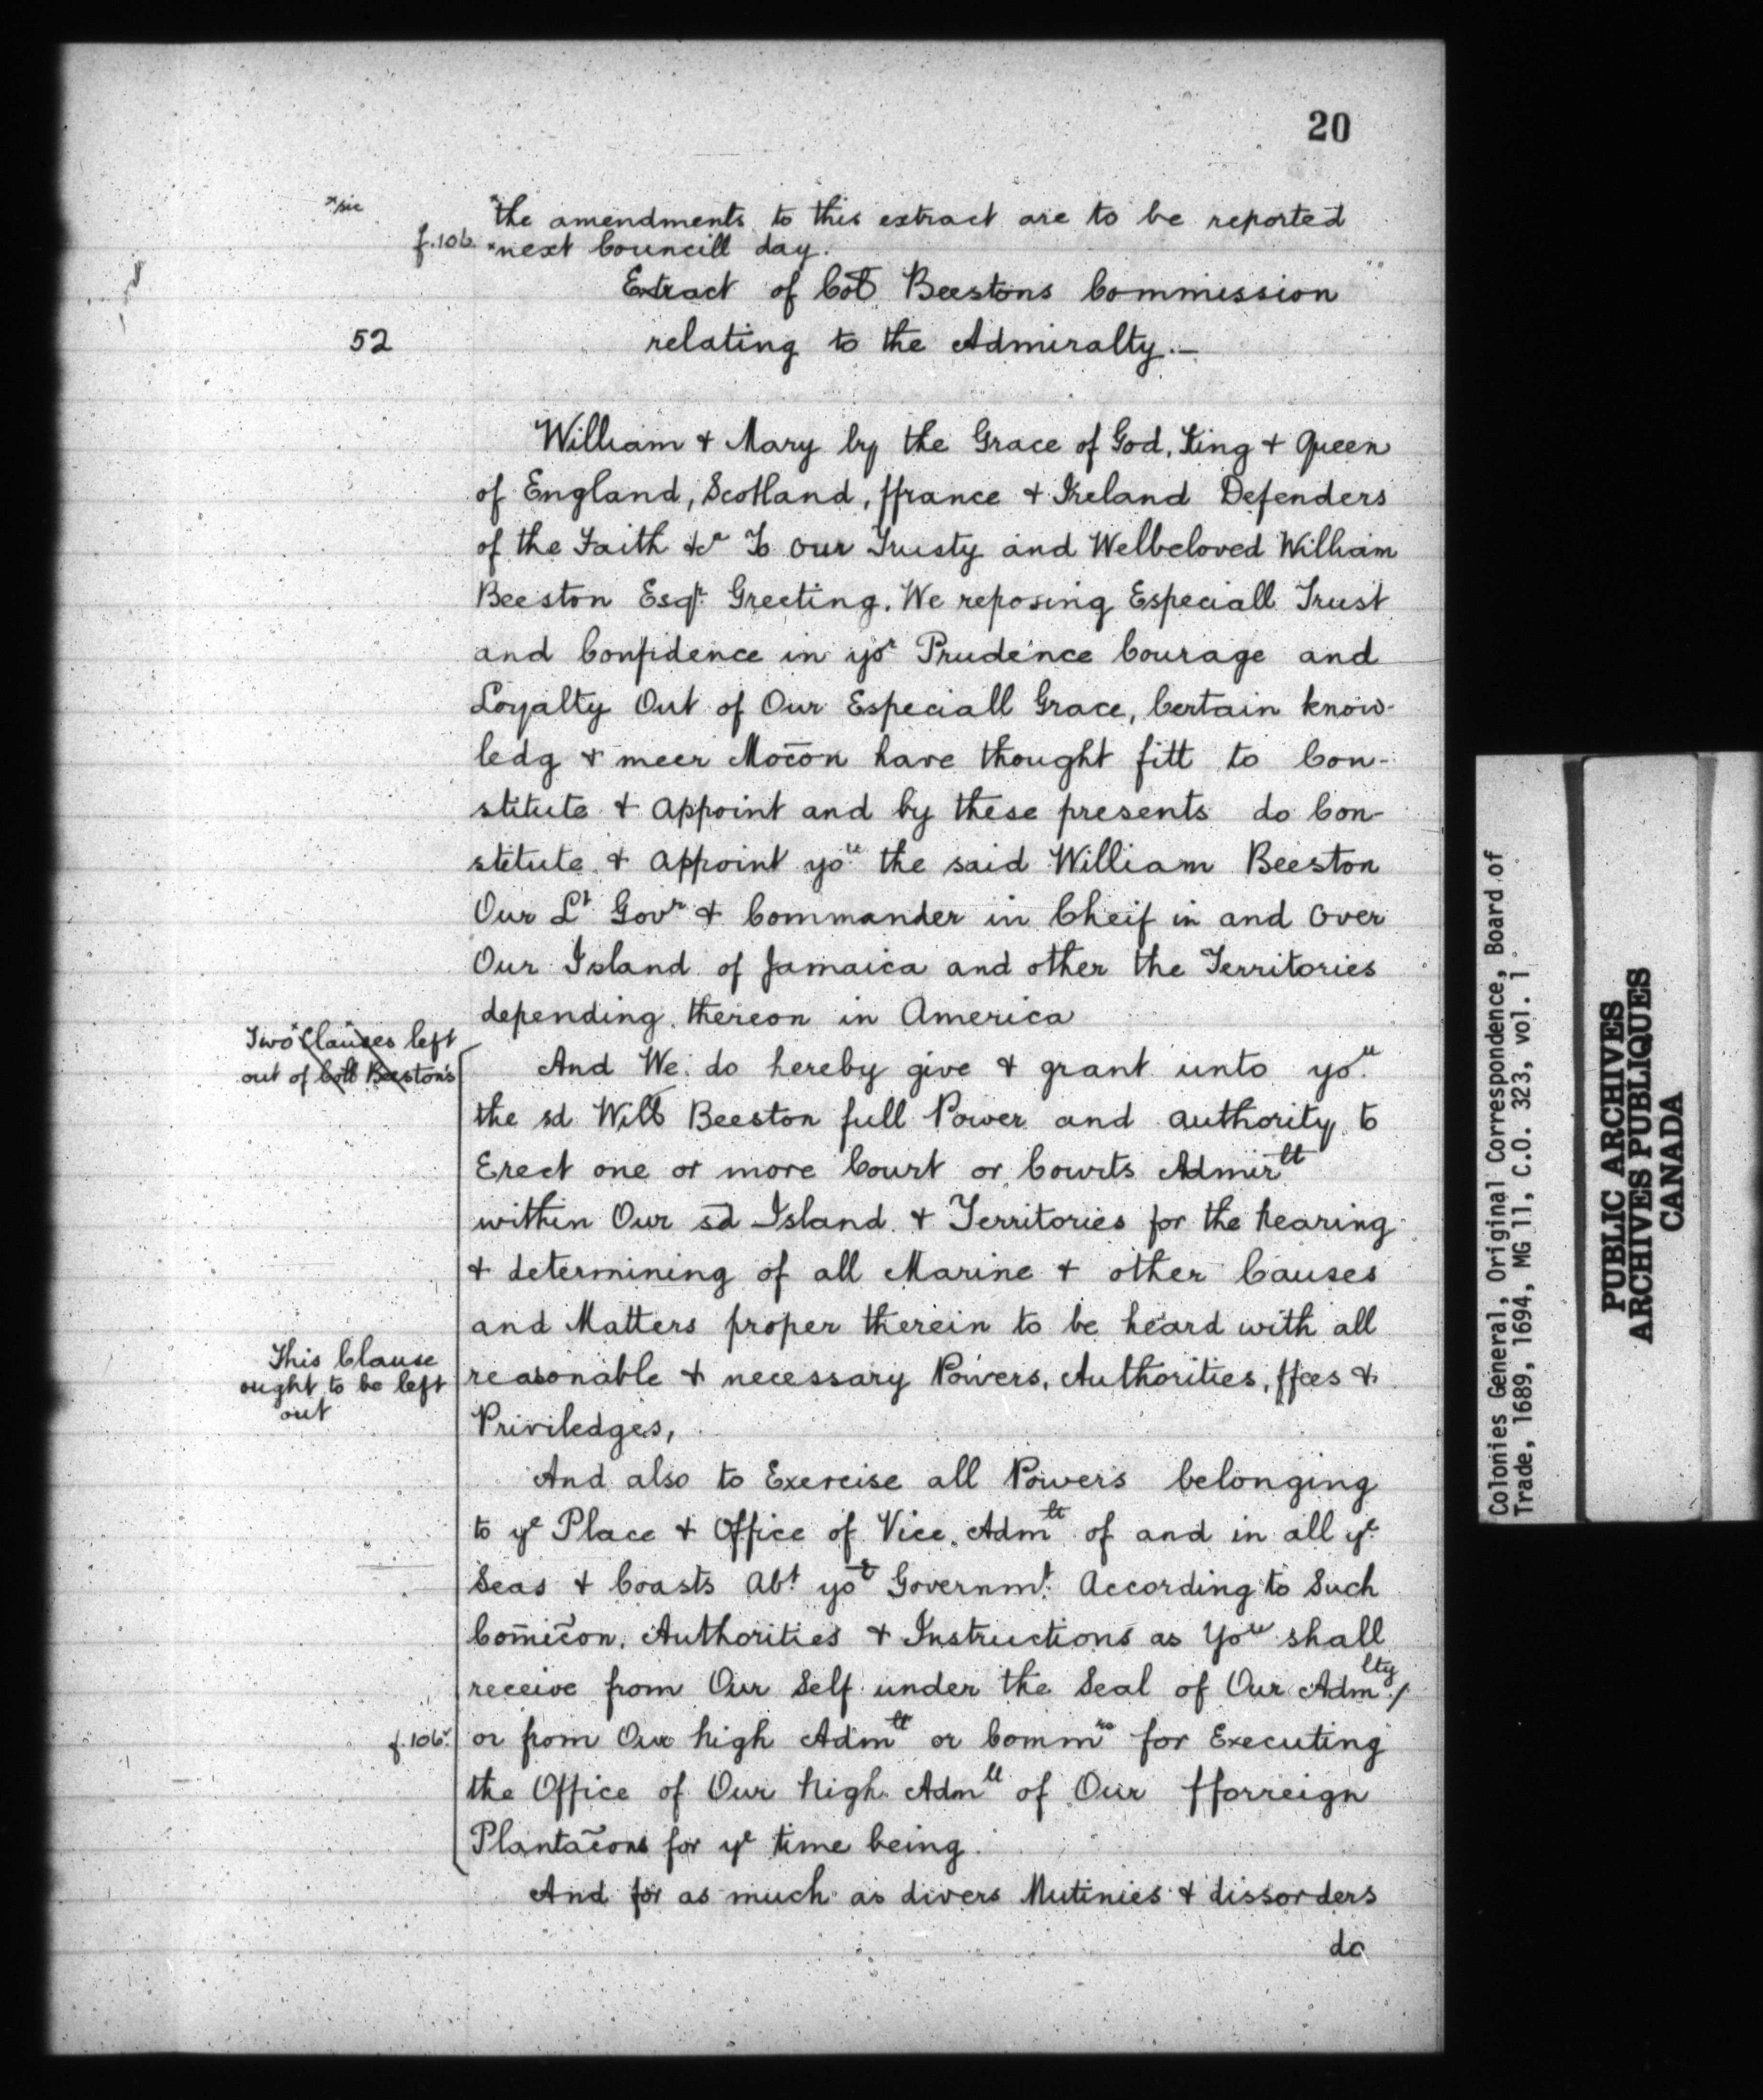 20
*sic
*the amendments to this extract are to be reported
f.106. *next Councill day.
Extract of Coll Beestons Commission
52
relating to the Admiralty.—
William + Mary by the Grace of God, King + Queen
of England, Scotland, ffrance + Ireland Defenders
of the Faith &c To our Trusty and Welbeloved William
Beeston Esqr. Greeting. We reposing Especiall Trust
and Confidence in yor Prudence Courage and
Loyalty Out of Our Especiall Grace, Certain know-
ledg + meer Mocon have thought fitt to Con-
stitute + appoint and by these presents do Con-
stitute + appoint you the said William Beeston
Our Lt Govr + Commander in Cheif in and over
Our Island of Jamaica and other the Territories
depending thereon in America
Two Clauses left
out of Coll Beeston's
And We do hereby give + grant unto you
the sd Will Beeston full Power and authority to
Erect one or more Court or Courts Admirll
within Our sd Island + Territories for the hearing
+ determining of all Marine + other Causes
and Matters proper therein to be heard with all
This Clause
ought to be left
out
reasonable + necessary Powers, Authorities, ffees +
Priviledges,
And also to Exercise all Powers belonging
to ye Place + Office of Vice Admll of and in all ye
Seas + Coasts Abt. yor Governmt. According to Such
Comicon, Authorities + Instructions as You shall
receive from Our Self under the Seal of Our Admlty/
f.106v
or from Our high Admll or Commrs for Executing
the Office of Our high Admll of Our fforreign
Plantacons for ye time being.
And for as much as divers Mutinies + dissorders
do
Colonies General, Original Correspondence, Board of
Trade, 1689, 1694, MG 11, C.O. 323, vol. 1
PUBLIC ARCHIVES
ARCHIVES PUBLIQUES
CANADA